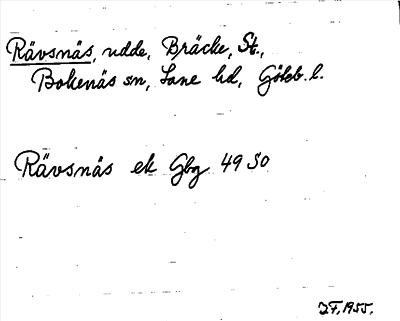 Rävsnäs, udde, Bräcke, St.,
Bokenäs sn, Lane hd, Göteb. l.
Rävsnäs ek Gbg 49 SO
JF, 1955.